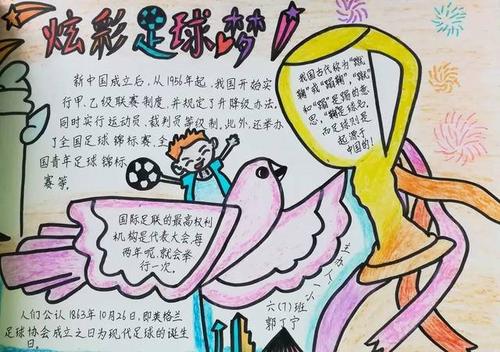 炫彩足球梦!
新中国成立后，从1956年起，我国开始实
行甲、乙级联赛制度，并规定了升降级办法，
同时实行运动员、裁判员等级制。此外，还举办
了全国足球锦标赛、全
国青年足球锦标
赛等。
我国古代称为“蹴
鞠”或“蹋鞠”，“蹴”
和“蹋”是踢的意
思，“鞠”是球名。
而足球则是
起源于
中国的！
国际足联的最高权利
机构是代表大会，每
两年呢，就会举
行一次。
六(7)班
郭丁宁
人们公认1863年10月26日，即英格兰
足球协会成立之日为现代足球的诞生
日。